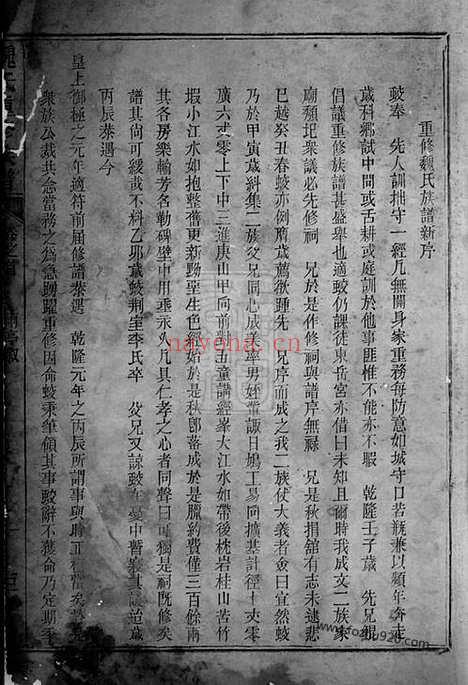 重修魏氏族譜新序
蛟奉 先人訓拙守一經凡無關身家重務每防意如城守口若瓶兼以頻年奔走
歲科鄉試中間或舌耕或庭訓於他事匪惟不能亦不暇 乾隆壬子歲 先兄鯤
倡議重修族譜甚盛舉也適蛟仍課徒東岳宮亦借曰未知且爾時我成文二族家
廟頹圯衆議必先修祠 兄於是作修祠與譜序無祿 兄是秋捐舘有志未逮悲
已越癸丑春蛟亦例膺歲薦欲踵先 兄序而成之我二族仗大義者僉曰宜然蛟
乃於甲寅歲糾集二族父兄同心成美率男妊董諏日鳩工易向擴基計徑十丈零
廣六丈零上下中三進庚山甲向前對五童講經峯大江水如帶後枕岩桂山苦竹
塅小江水如抱整舊更新黝堊生色經始於是秋卽落成於是臘約費僅三百餘兩
其各房樂輸芳名勒碑壁中用垂永久凡具仁孝之心者同聲曰可獨是祠既修矣
譜其尚可緩哉不料乙卯歲蛟荆室李氏卒 父兄又諒蛟
丙辰泰遇今
皇上御極之元年適符前届修譜泰遇 乾隆元年之丙辰所謂事與時
衆族公裁共念當務之爲急踴躍重修因命蛟秉筆領其事蛟辭不獲命乃定期
nayona.cn
www.fozu920.com